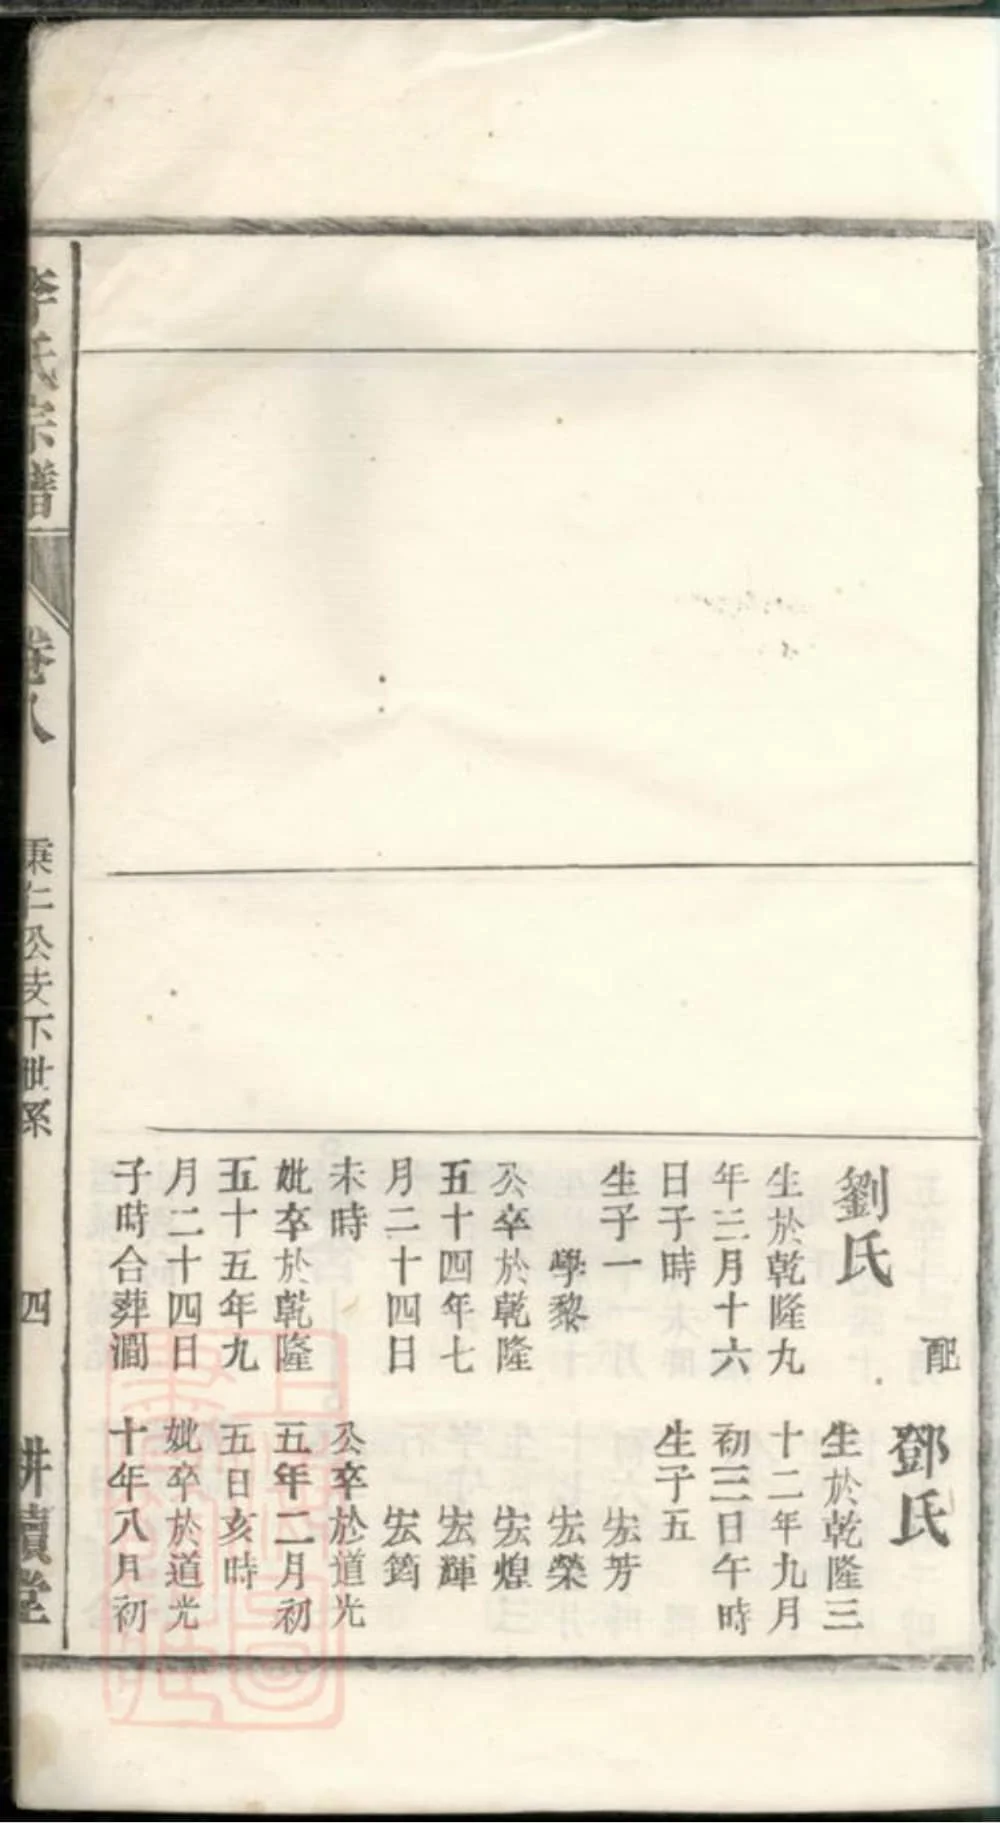 配
劉氏
生於乾隆九
年三月十六
日子時
生子一
學黎
公卒於乾隆
五十四年七
月二十四日
未時
妣卒於乾隆
五十五年九
月二十四日
子時合葬澗
鄧氏
生於乾隆三
十二年九月
初三日午時
生子五
宏芳
宏榮
宏煌
宏輝
宏筠
公卒於道光
五年二月初
五日亥時
妣卒於道光
十年八月初
李氏宗譜
卷八
秉仁公支下世系
四
耕讀堂